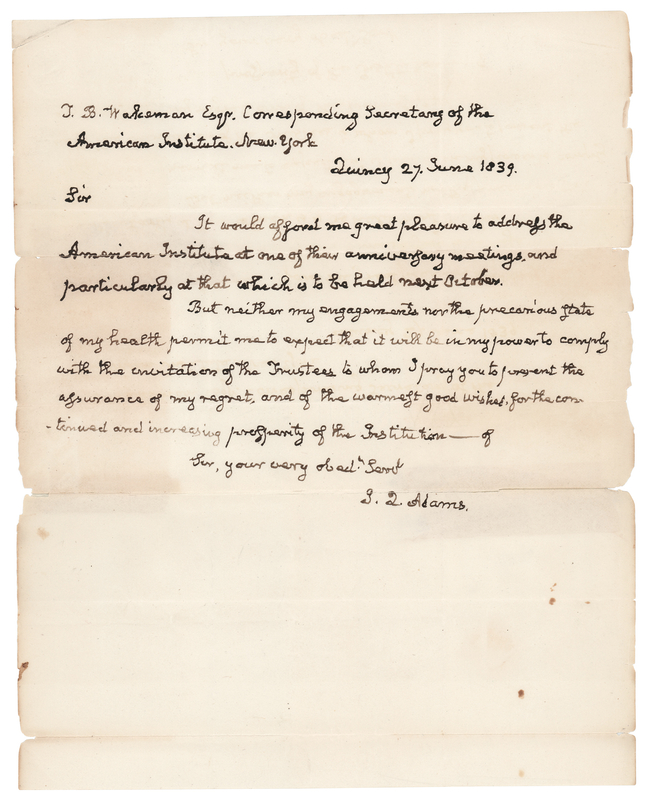 T. B. Wakeman Esqr. Corresponding Secretary of the
American Institute. New-York
Quincy 27. June 1839.
Sir
It would afford me great pleasure to address the
American Institute at one of their anniversary meetings, and
particularly at that which is to be held next October.
But neither my engagements nor the precarious state
of my health permit me to expect that it will be in my power to comply
with the invitation of the Trustees to whom I pray you to present the
assurance of my regret, and of the warmest good wishes, for the con-
-tinued and increasing prosperity of the Institution — of
Sir, your very obedt. Servt
J. Q. Adams.